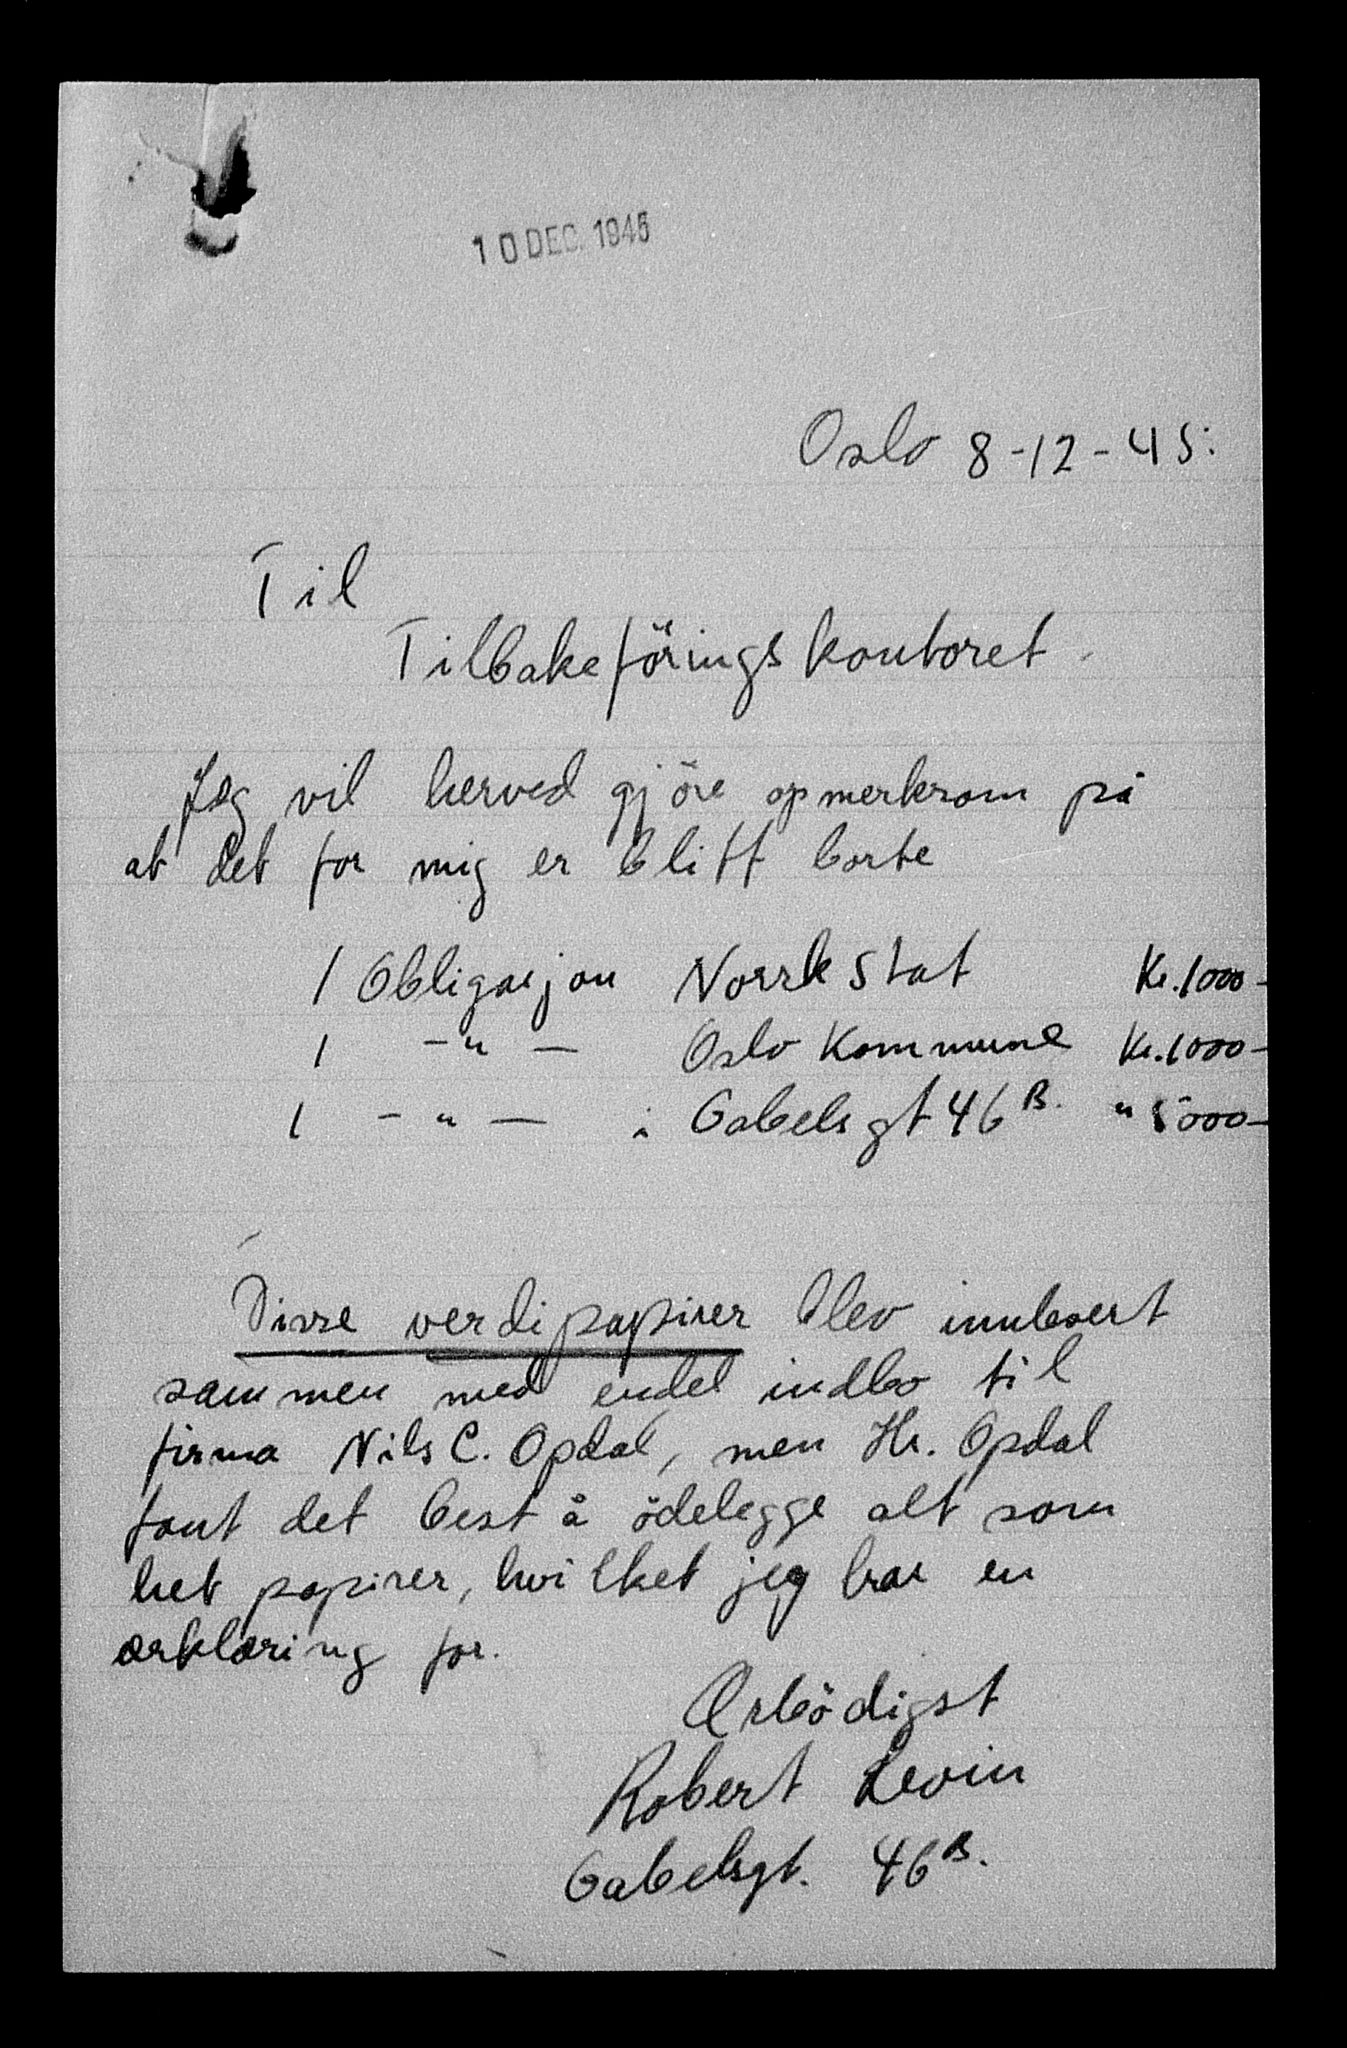 10 DEC. 1945
Oslo 8-12-45:
Til
Tilbakeföringskontoret.
Jeg vil herved gjöre opmerksom på
at det for mig er blitt borte
1 Obligasjon Norsk Stat Kr. 1000-
1 -"- Oslo Kommune Kr. 1000-
1 -"- i Gabelsgt 46B. " 5000-
Disse verdipapirer blev innlevert
sammen med endel indbo til
firma Nils C. Opdal, men Hr. Opdal
fant det best å ödelegge alt som
het papirer, hvilket jeg har en
ærklæring for.
Ærbödigst
Robert Levin
Gabelsgt. 46B.